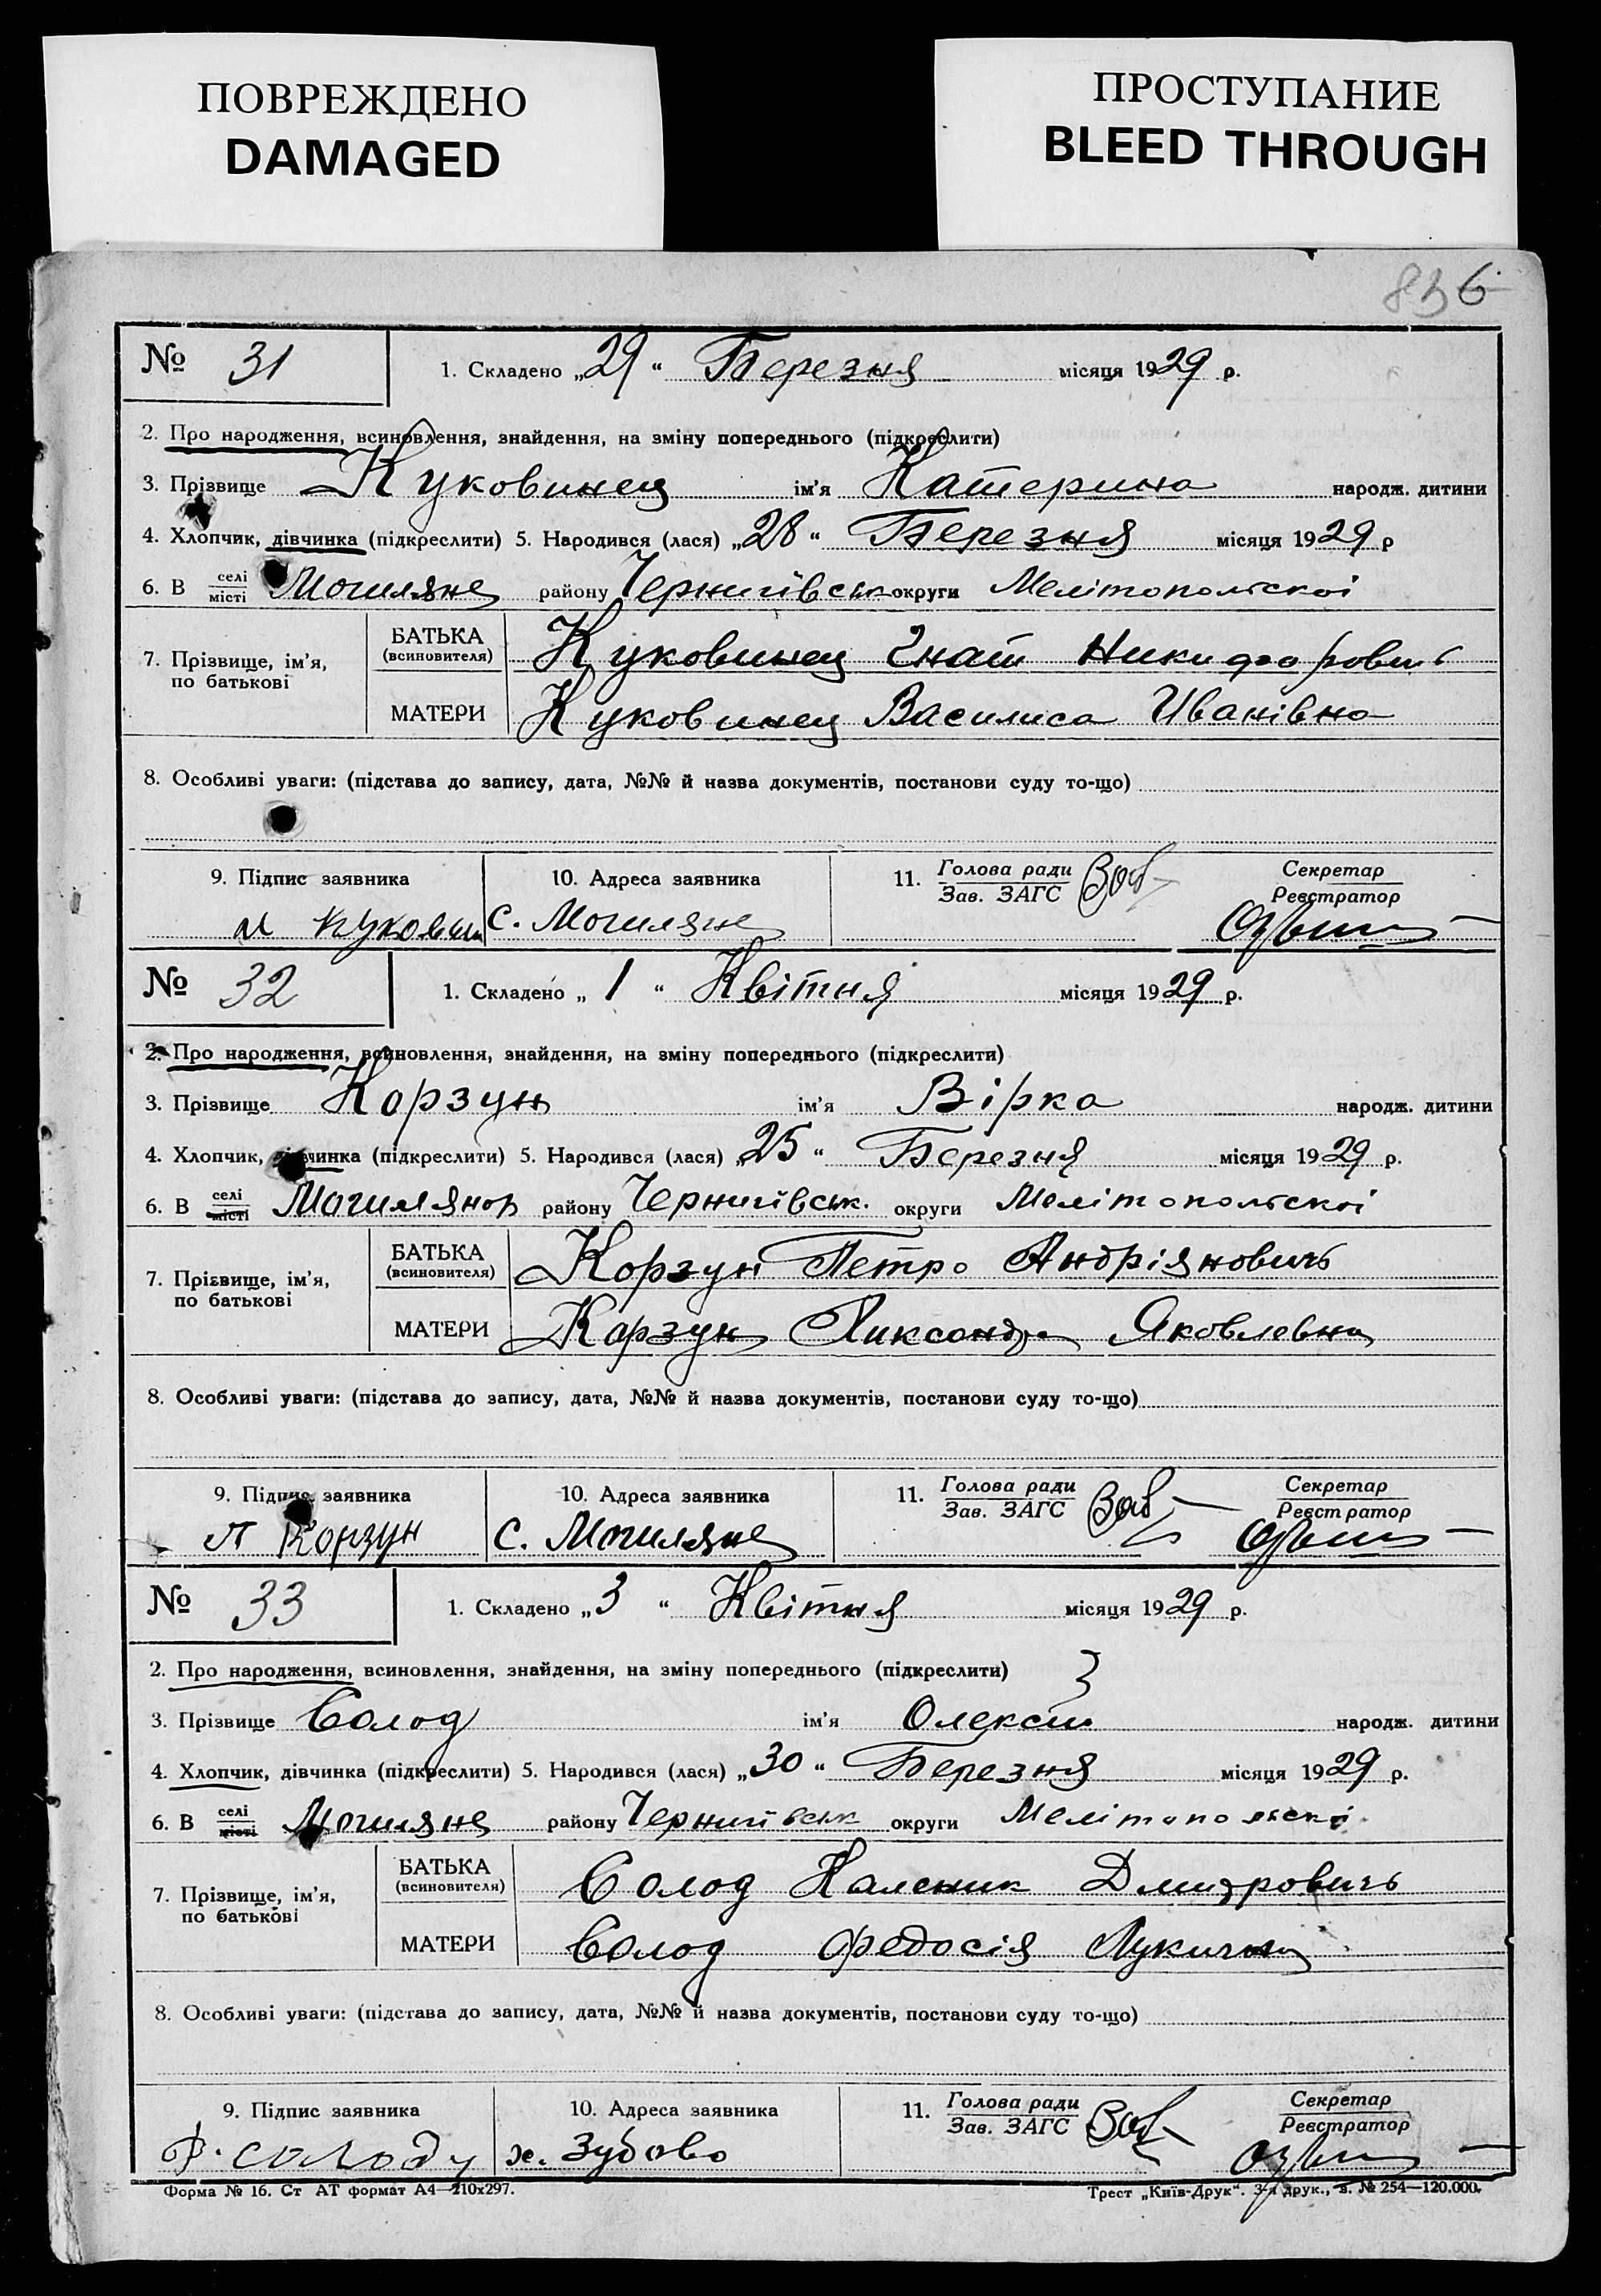 ПОВРЕЖДЕНО
DAMAGED
ПРОСТУПАНИЕ
BLEED THROUGH
6
№ 31 1. Складено „29“ Березня місяця 1929 р.
2. Про народження, всиновлення, знайдення, на зміну попереднього (підкреслити)
3. Прізвище Куковинец ім'я Катерина народж. дитини
4. Хлопчик, дівчинка (підкреслити) 5. Народився (лася) „28“ Березня місяця 1929 р
6. В селі місті Могиляне району Чернигівськ округи Мелітопольскоі
7. Прізвище, ім'я, по батькові
БАТЬКА (всиновителя) Куковинец Гнат Никифорович
МАТЕРИ Куковинец Василиса Иванівна
8. Особливі уваги: (підстава до запису, дата, №№ й назва документів, постанови суду то-що)
9. Підпис заявника 10. Адреса заявника 11. Голова ради Зав. ЗАГС Секретар Реєстратор
с. Могиляне
№ 32 1. Складено „1“ Квітня місяця 1929 р.
2. Про народження, всиновлення, знайдення, на зміну попереднього (підкреслити)
3. Прізвище Корзун ім'я Вірка народж. дитини
4. Хлопчик, дівчинка (підкреслити) 5. Народився (лася) „25“ Березня місяця 1929 р.
6. В селі місті району Чернигівськ. округи Мелітопольскоі
7. Прізвище, ім'я, по батькові
БАТЬКА (всиновителя) Корзун Петро Андріяновичь
МАТЕРИ Карзун Ликсандра Яковлевна
8. Особливі уваги: (підстава до запису, дата, №№ й назва документів, постанови суду то-що)
9. Підпис заявника 10. Адреса заявника 11. Голова ради Зав. ЗАГС Секретар Реєстратор
П Корзун с. Могиляне
№ 33 1. Складено „3“ Квітня місяця 1929 р.
2. Про народження, всиновлення, знайдення, на зміну попереднього (підкреслити)
3. Прізвище Солод ім'я Олексій народж. дитини
4. Хлопчик, дівчинка (підкреслити) 5. Народився (лася) „30“ Березня місяця 1929 р.
6. В селі місті Могиляне району Чернигівськ округи Мелітопольскі
7. Прізвище, ім'я, по батькові
БАТЬКА (всиновителя) Солод Каленик Дмитровичь
МАТЕРИ Солод Федосія Лукична
8. Особливі уваги: (підстава до запису, дата, №№ й назва документів, постанови суду то-що)
9. Підпис заявника 10. Адреса заявника 11. Голова ради Зав. ЗАГС Секретар Реєстратор
х. Зубово
Форма № 16. Ст АТ формат А4—210х297. Трест „Київ-Друк“. 3-я друк., з. № 254—120.000.